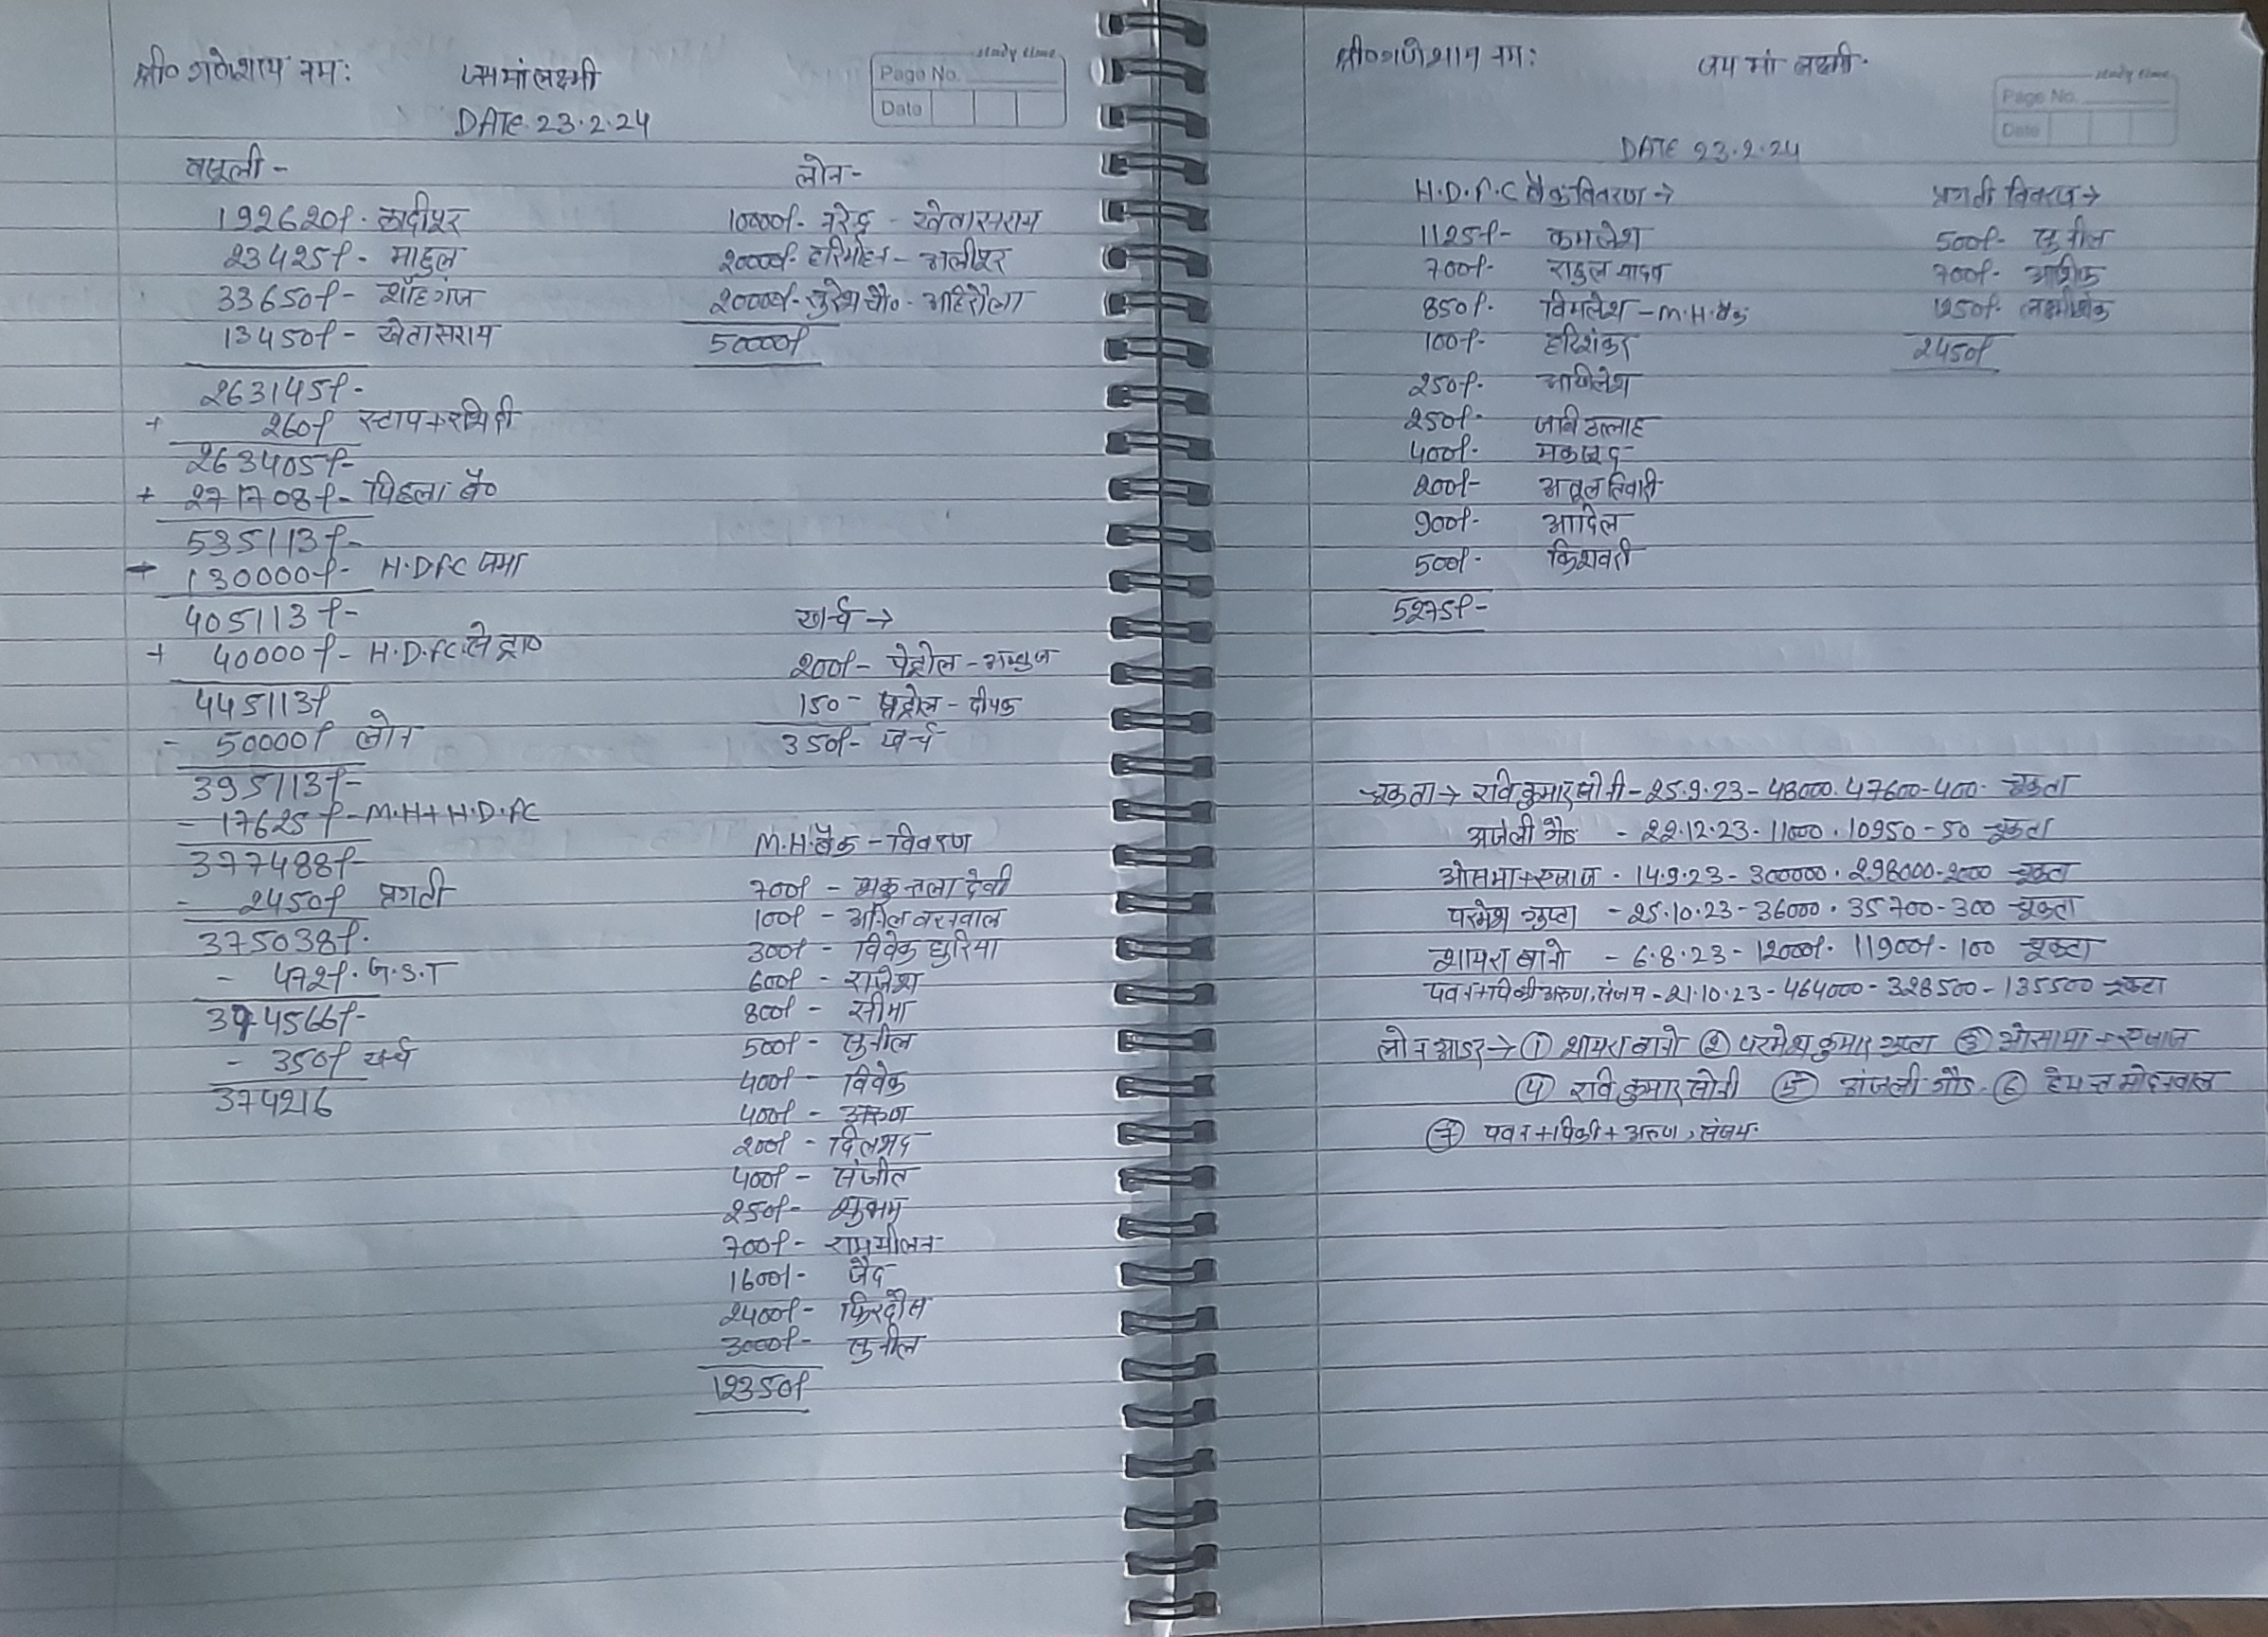 श्री० गणेशाय नमः जय मां लक्ष्मी
study time
Page No.
Date
DATE 23.2.24
वसूली -
192620/- लादीपुर
23425/- माहुल
33650/- शाँहगंज
13450/- खेतासराय
263145/-
+ 260/ स्टाप+रसिदी
263405/-
+ 271708/- पिछला बै०
535113/-
- 130000/- H.DFC जमा
405113/-
+ 40000/- H.D.FC से ट्रा०
445113/
- 50000/ लोन
395113/-
- 17625/- M.H+H.D.FC
377488/-
- 2450/ प्रगती
375038/-
- 472/- G.S.T
374566/-
- 350/ खर्च
374216
लोन-
10000/- नरेंद्र - खेतासराय
20000/- हरिमोहन - अलीपुर
20000/- सुरेश चौ० - अहिरौला
50000/
खर्च →
200/- पेट्रोल -
150 - पेट्रोल - दीपक
350/- खर्च
M.H.बैंक - विवरण
700/ - शकुन्तला देवी
100/ - अनिल बरनवाल
300/ - विवेक घुरिया
600/ - राजेश
800/ - सीमा
500/ - सुनील
400/ - विवेक
400/ - अरुण
200/ - दिलशद
400/ - संजीत
250/ - शुभम
700/ - राममीलन
1600/- जैद
2400/- फिरदौस
3000/- सुनील
12350/
श्री० गणेशाय नमः जय मां लक्ष्मी
study time
Page No.
Date
DATE 23.2.24
H.D.F.C बैंक विवरण →
1125/- कमलेश
700/- राहुल यादव
850/- विमलेश - M.H.बैंक
100/- हरिशंकर
250/- अखिलेश
250/- जवि उल्लाह
400/-
200/- अतूल तिवारी
900/- आदिल
500/- किशवरी
5275/-
प्रगती विवरण →
500/- सुनील
700/-
1250/-
2450/
चूकता → रवि कुमार सोनी - 25.9.23 - 48000. 47600 - 400. चूकता
अंजली गौड - 22.12.23 - 11000. 10950 - 50 चूकता
ओसमा+एजाज - 14.9.23 - 300000. 298000 - 2000 चूकता
परमेश गुप्ता - 25.10.23 - 36000. 35700 - 300 चूकता
शायरा बानो - 6.8.23 - 12000/. 11900/ - 100 चूकता
पवन+पिंकी अरुण, संजय - 21.10.23 - 464000 - 328500 - 135500 चूकता
लोन आडर → ① शायरा बानो ② परमेश कुमार गुप्ता ③ ओसामा + एजाज
④ रवि कुमार सोनी ⑤ अंजली गौड ⑥ हेमन्त मोदनवाल
⑦ पवन+पिंकी+अरुण, संजय